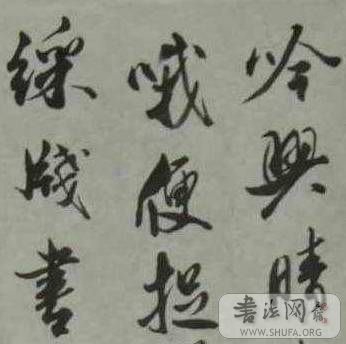 吟興時
哦便捉
綵牋書
書法网
WWW.SHUFA.ORG